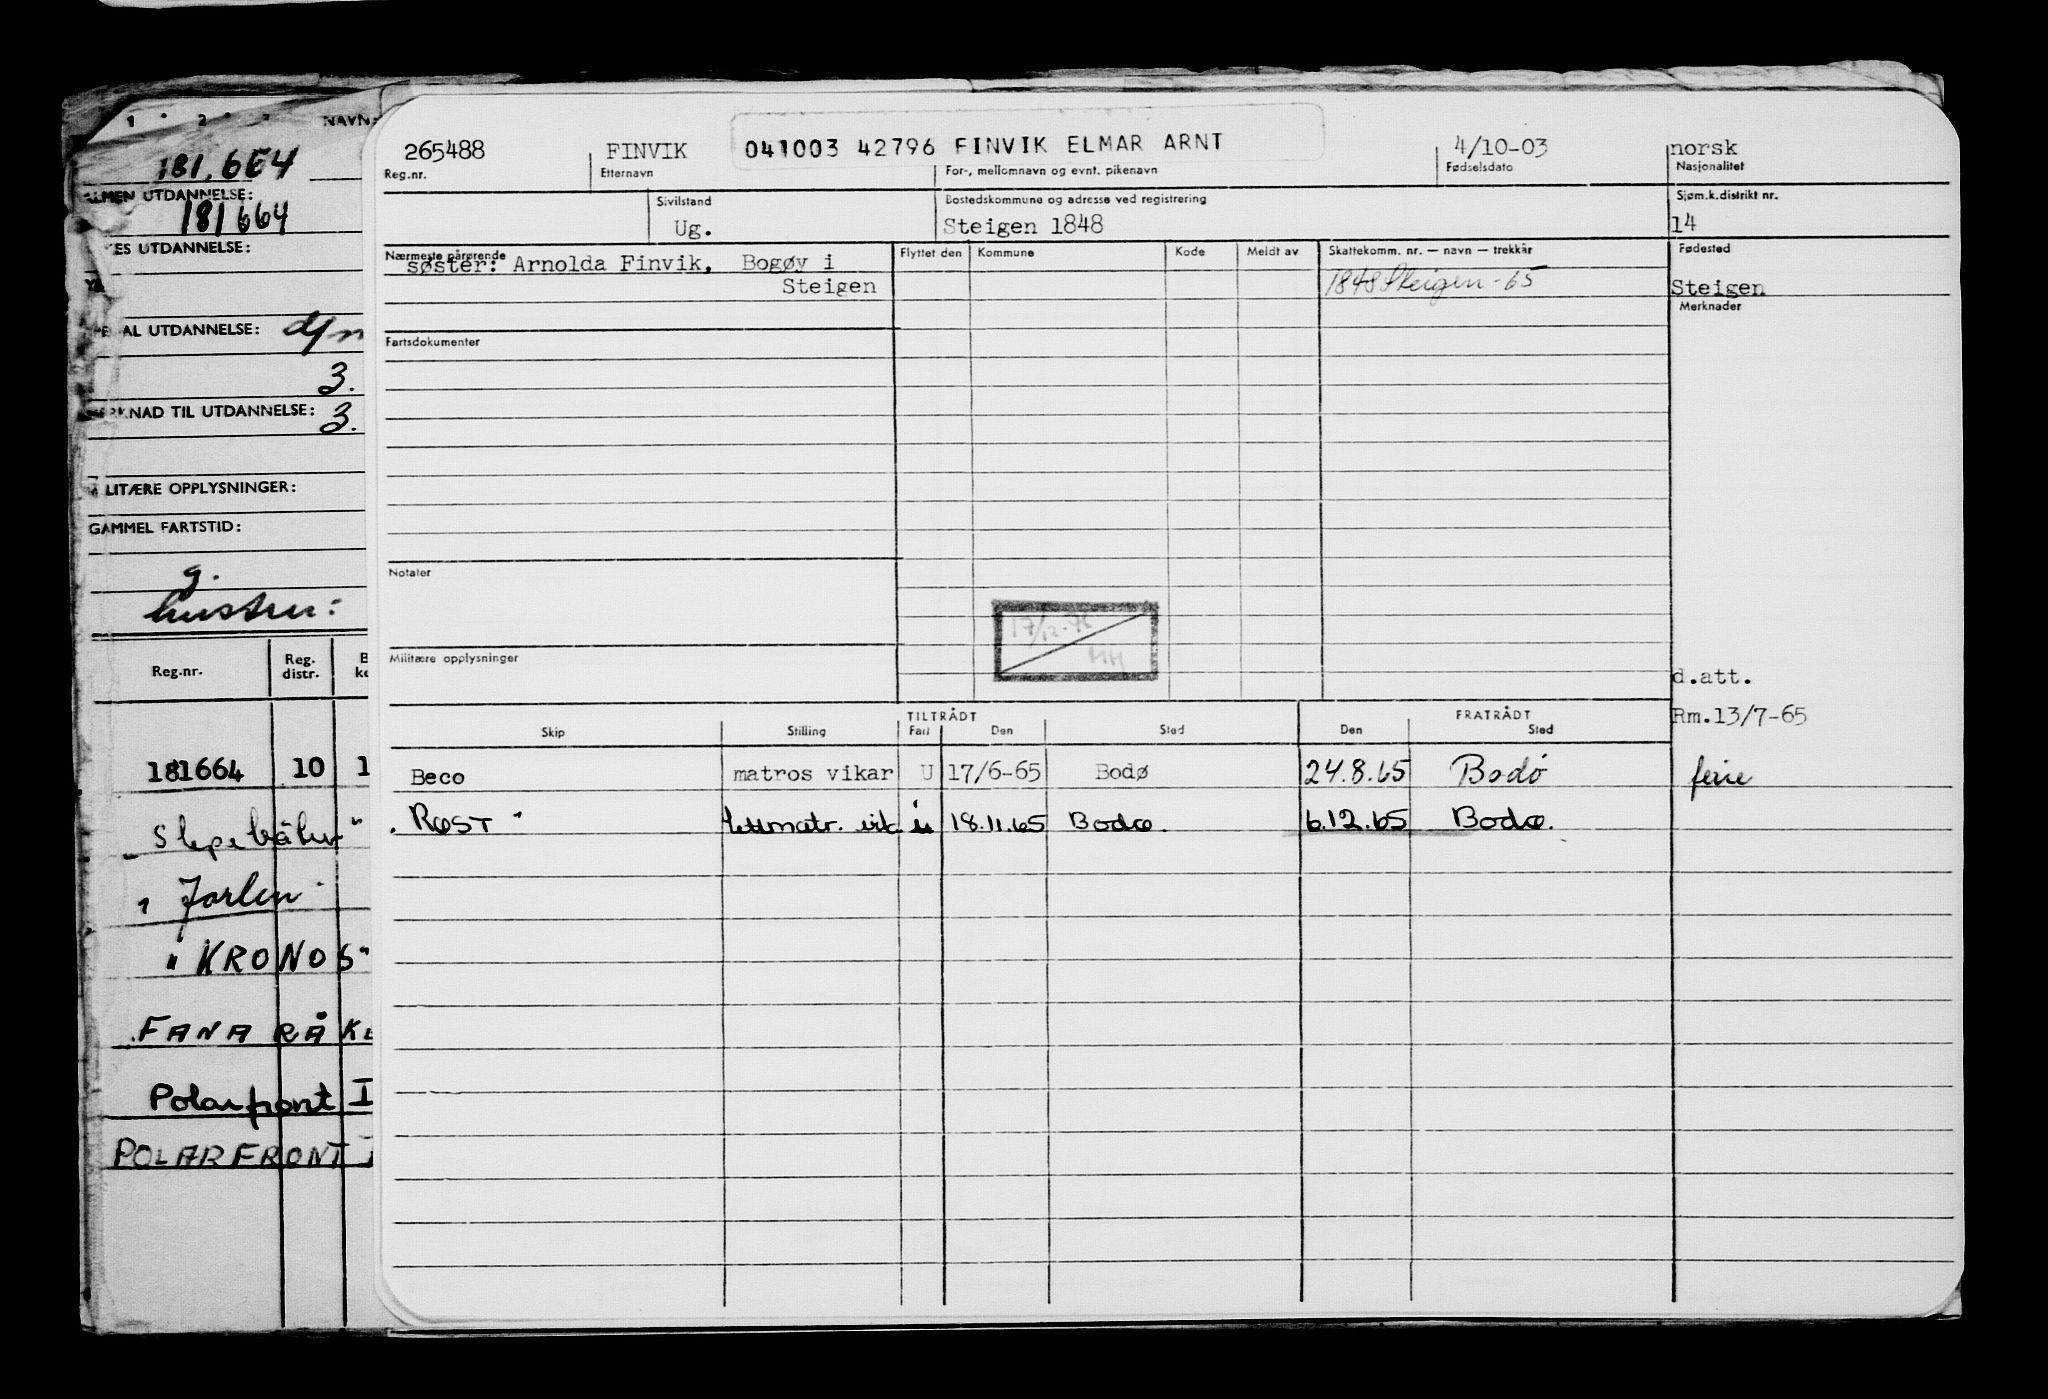 1 · 2 · NAVN:
181.664
ALMEN UTDANNELSE:
181664
UTDANNELSE:
UTDANNELSE:
3.
MERKNAD TIL UTDANNELSE:
3.
MILITÆRE OPPLYSNINGER:
GAMMEL FARTSTID:
g.
hustru:
Reg.nr. Reg. distr.
181664 10 1
" Jarlen "
" KRONOS "
FANARÅK
Polarfront I
POLARFRONT
265488 FINVIK 041003 42796 FINVIK ELMAR ARNT 4/10-03 norsk
Reg.nr. Etternavn For-, mellomnavn og evnt. pikenavn Fødselsdato Nasjonalitet
Sivilstand Bostedskommune og adresse ved registrering Sjøm.k.distrikt nr.
Ug. Steigen 1848 14
Nærmeste pårørende Flyttet den Kommune Kode Meldt av Skattekomm. nr. — navn — trekkår Fødested
søster: Arnolda Finvik, Bogøy i
Steigen 1848 Steigen - 65 Steigen
Merknader
Fartsdokumenter
Notater
17/12-76
HH
Militære opplysninger
d.att.
TILTRÅDT FRATRÅDT Rm.13/7-65
Skip Stilling Fart Den Sted Den Sted
Beco matros vikar U 17/6-65 Bodø 24.8.65 Bodø ferie
" Røst " lettmatr. vik u 18.11.65 Bodø. 6.12.65 Bodø.